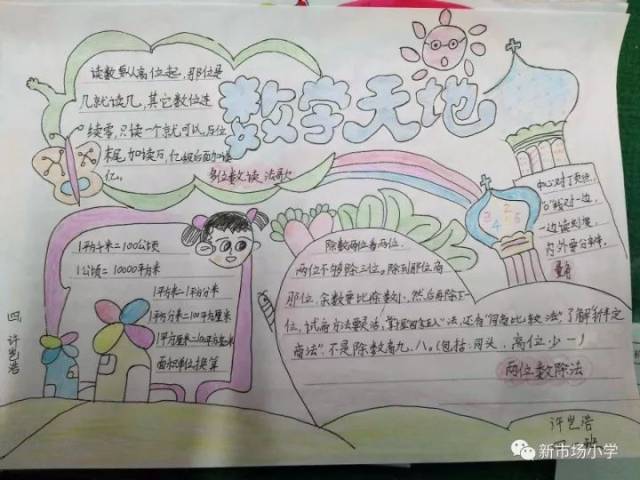 数学天地
读数要从高位起，那位是
几就读几，其它数位连
续零，只读一个就可以，后位
末尾
亿。
多位数读法歌
1平方千米=100公顷
1公顷=10000平方米
1平方米=1平方分米
1平方分米=100平方厘米
1平方厘米=100平方毫米
面积单位换算
除数两位看两位，
两位不够除三位，除到那位商
那位，余数要比除数小，然后再除下一
位，试商方法要灵活，
商法"，不是除数看九、八。（包括：同头、高位少一）
两位数除法
中心对
0°线对一边，
一边读刻度，
内外要分
量角
四 许艺浩
许艺浩
四 班
新市场小学